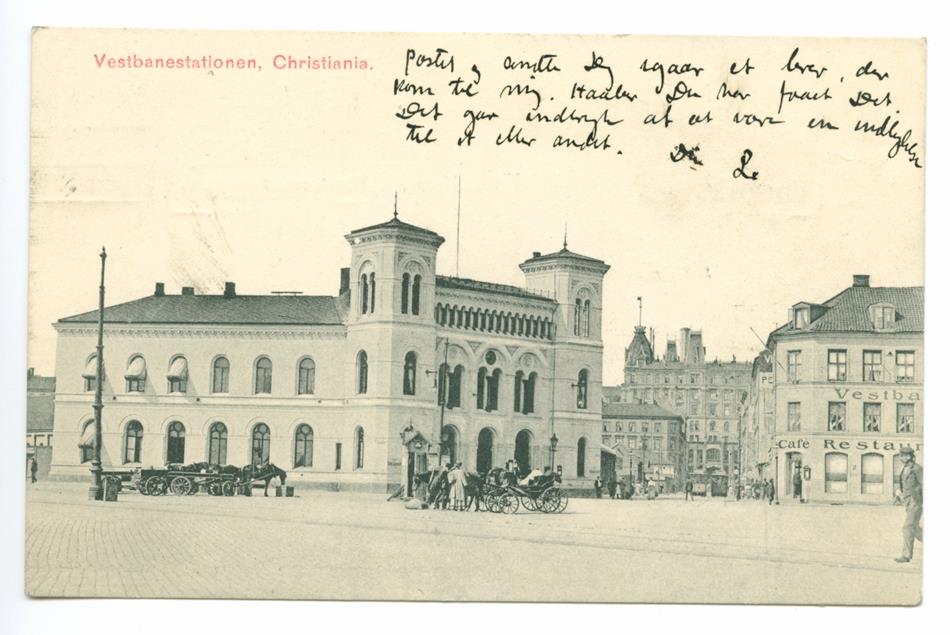 Vestbanestationen, Christiania.
Postet og sendte Dig igaar et brev, der
kom til mig. Haaber Du har faaet Det.
Det gør indtryk af at være en indbydelse
til et eller andet. Din L.
PO
Vestba
Café Restaur